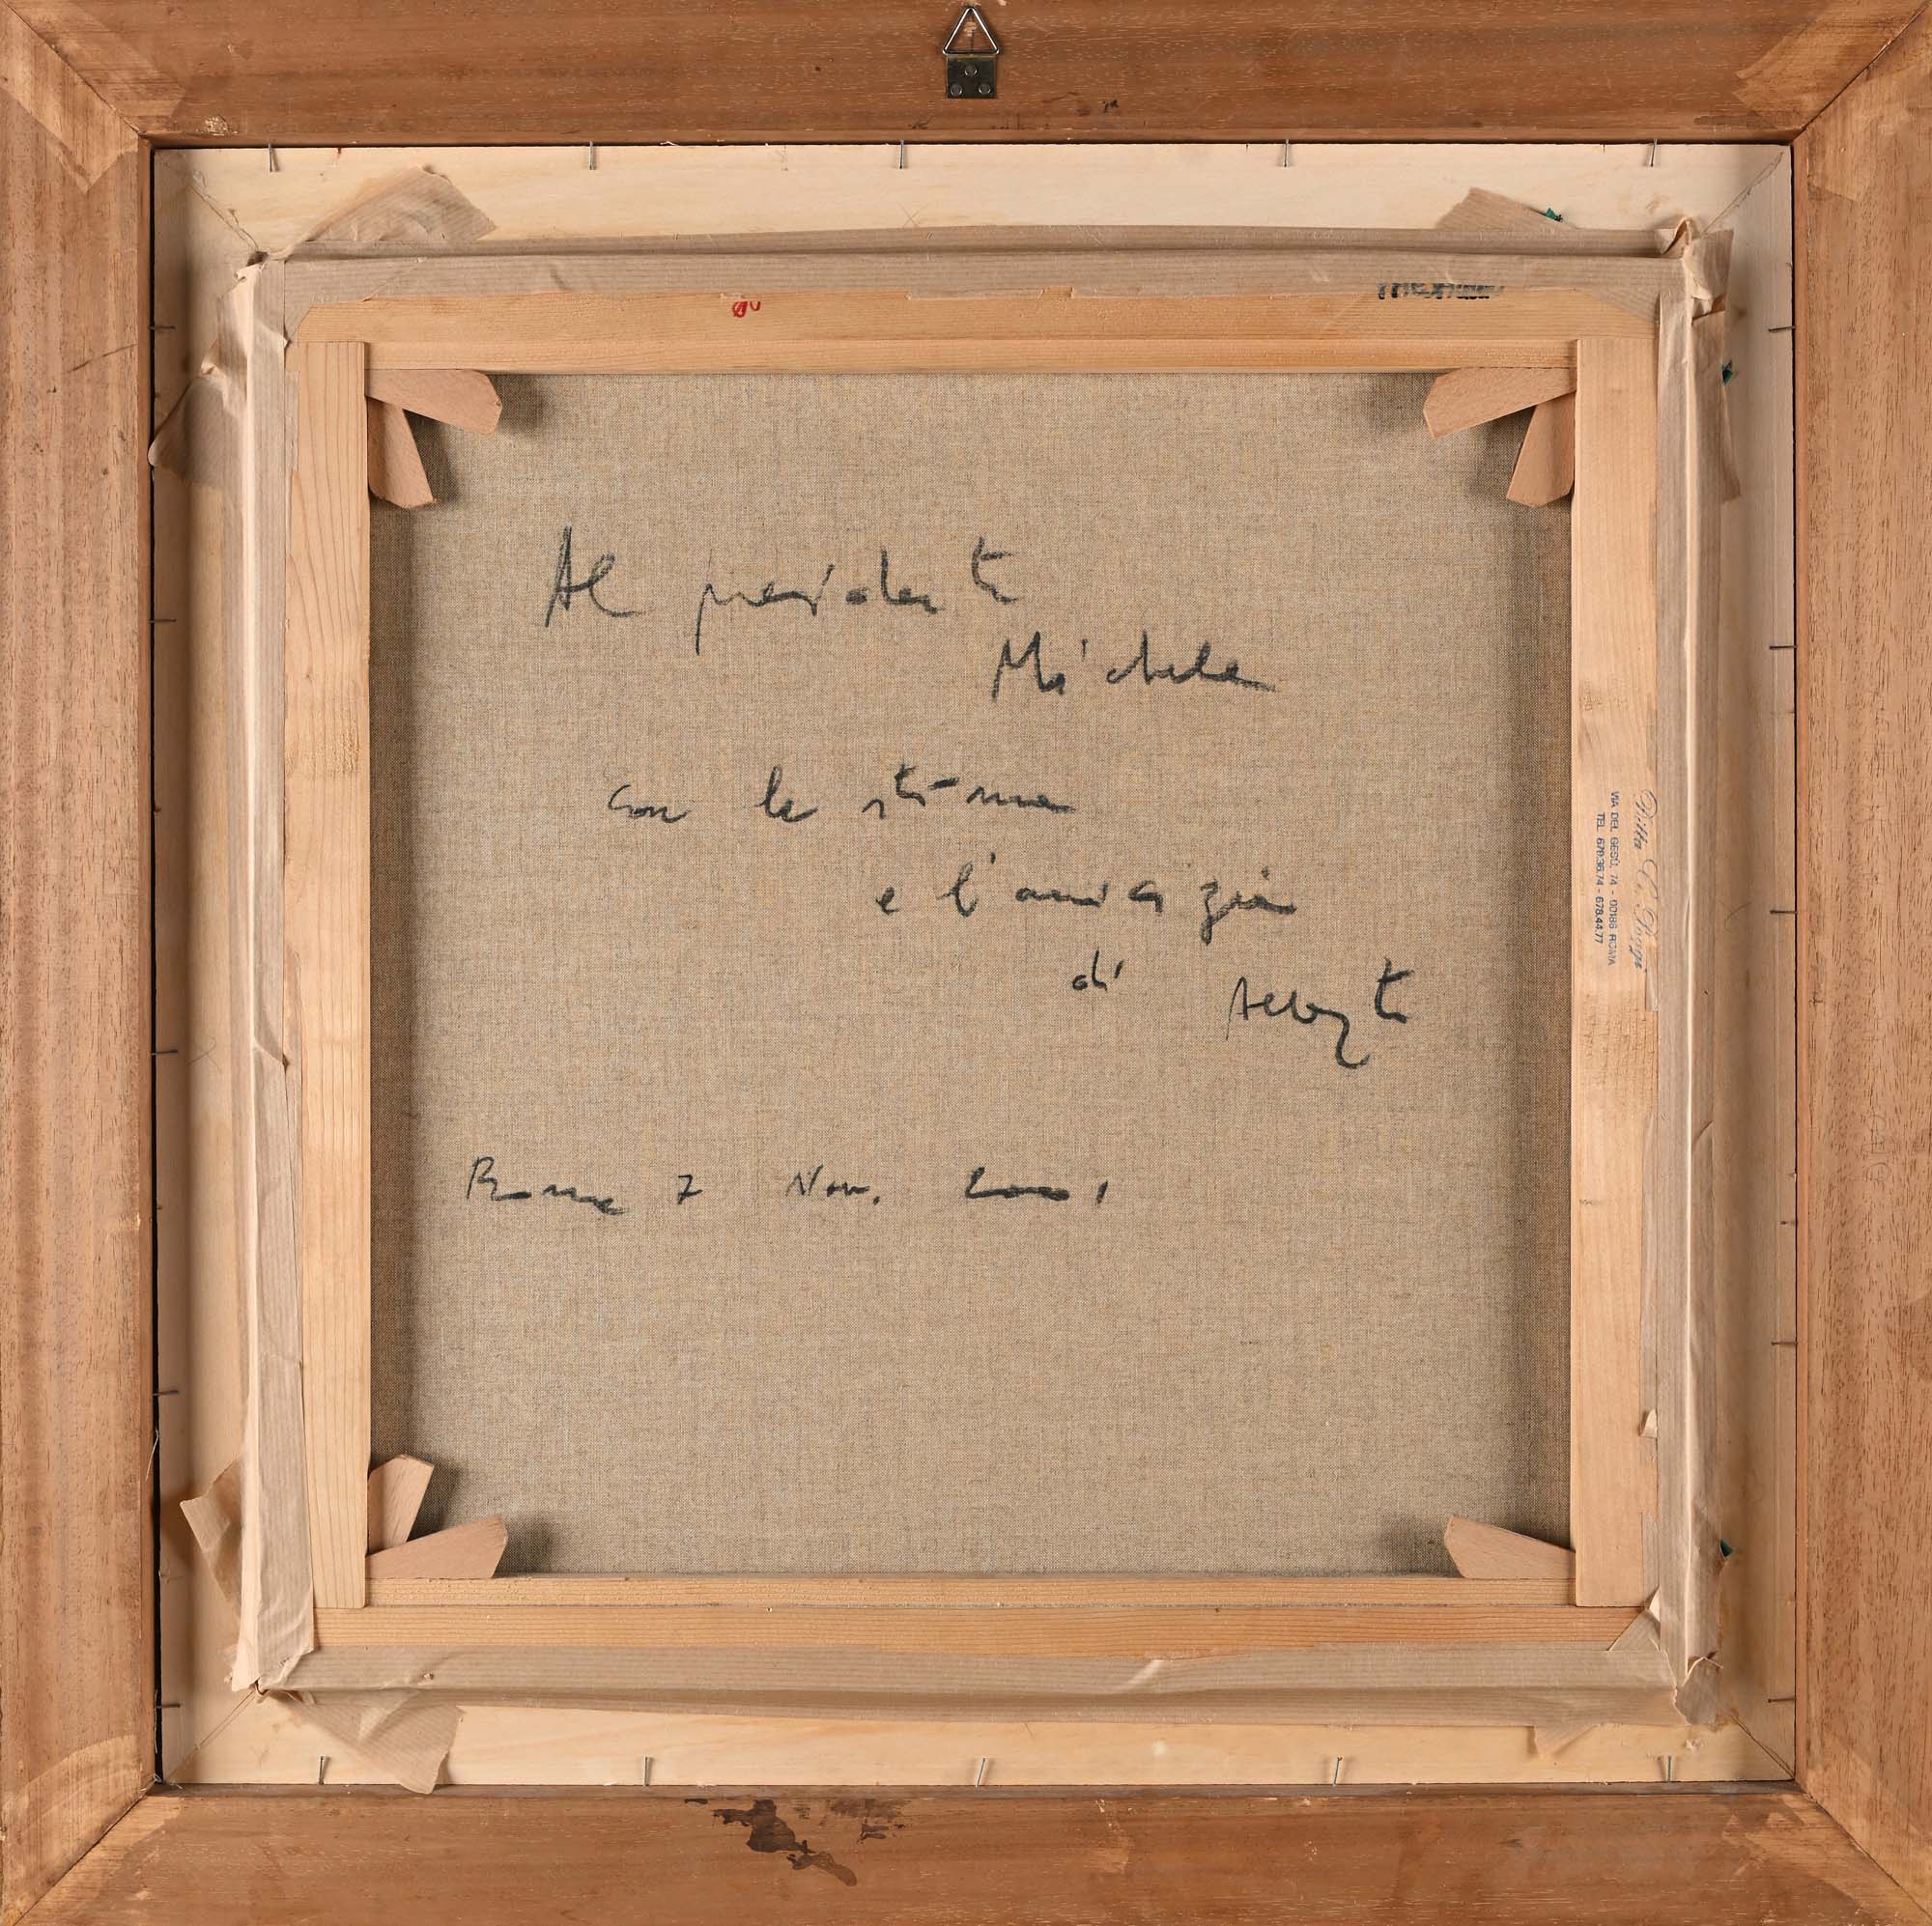 Al presidente
Michele
con la stima
e l'amicizia
di
Roma 7 Nov. 2001
Ditta G. Poggi
VIA DEL GESÙ, 74 - 00186 ROMA
TEL. 679.36.74 - 678.44.77